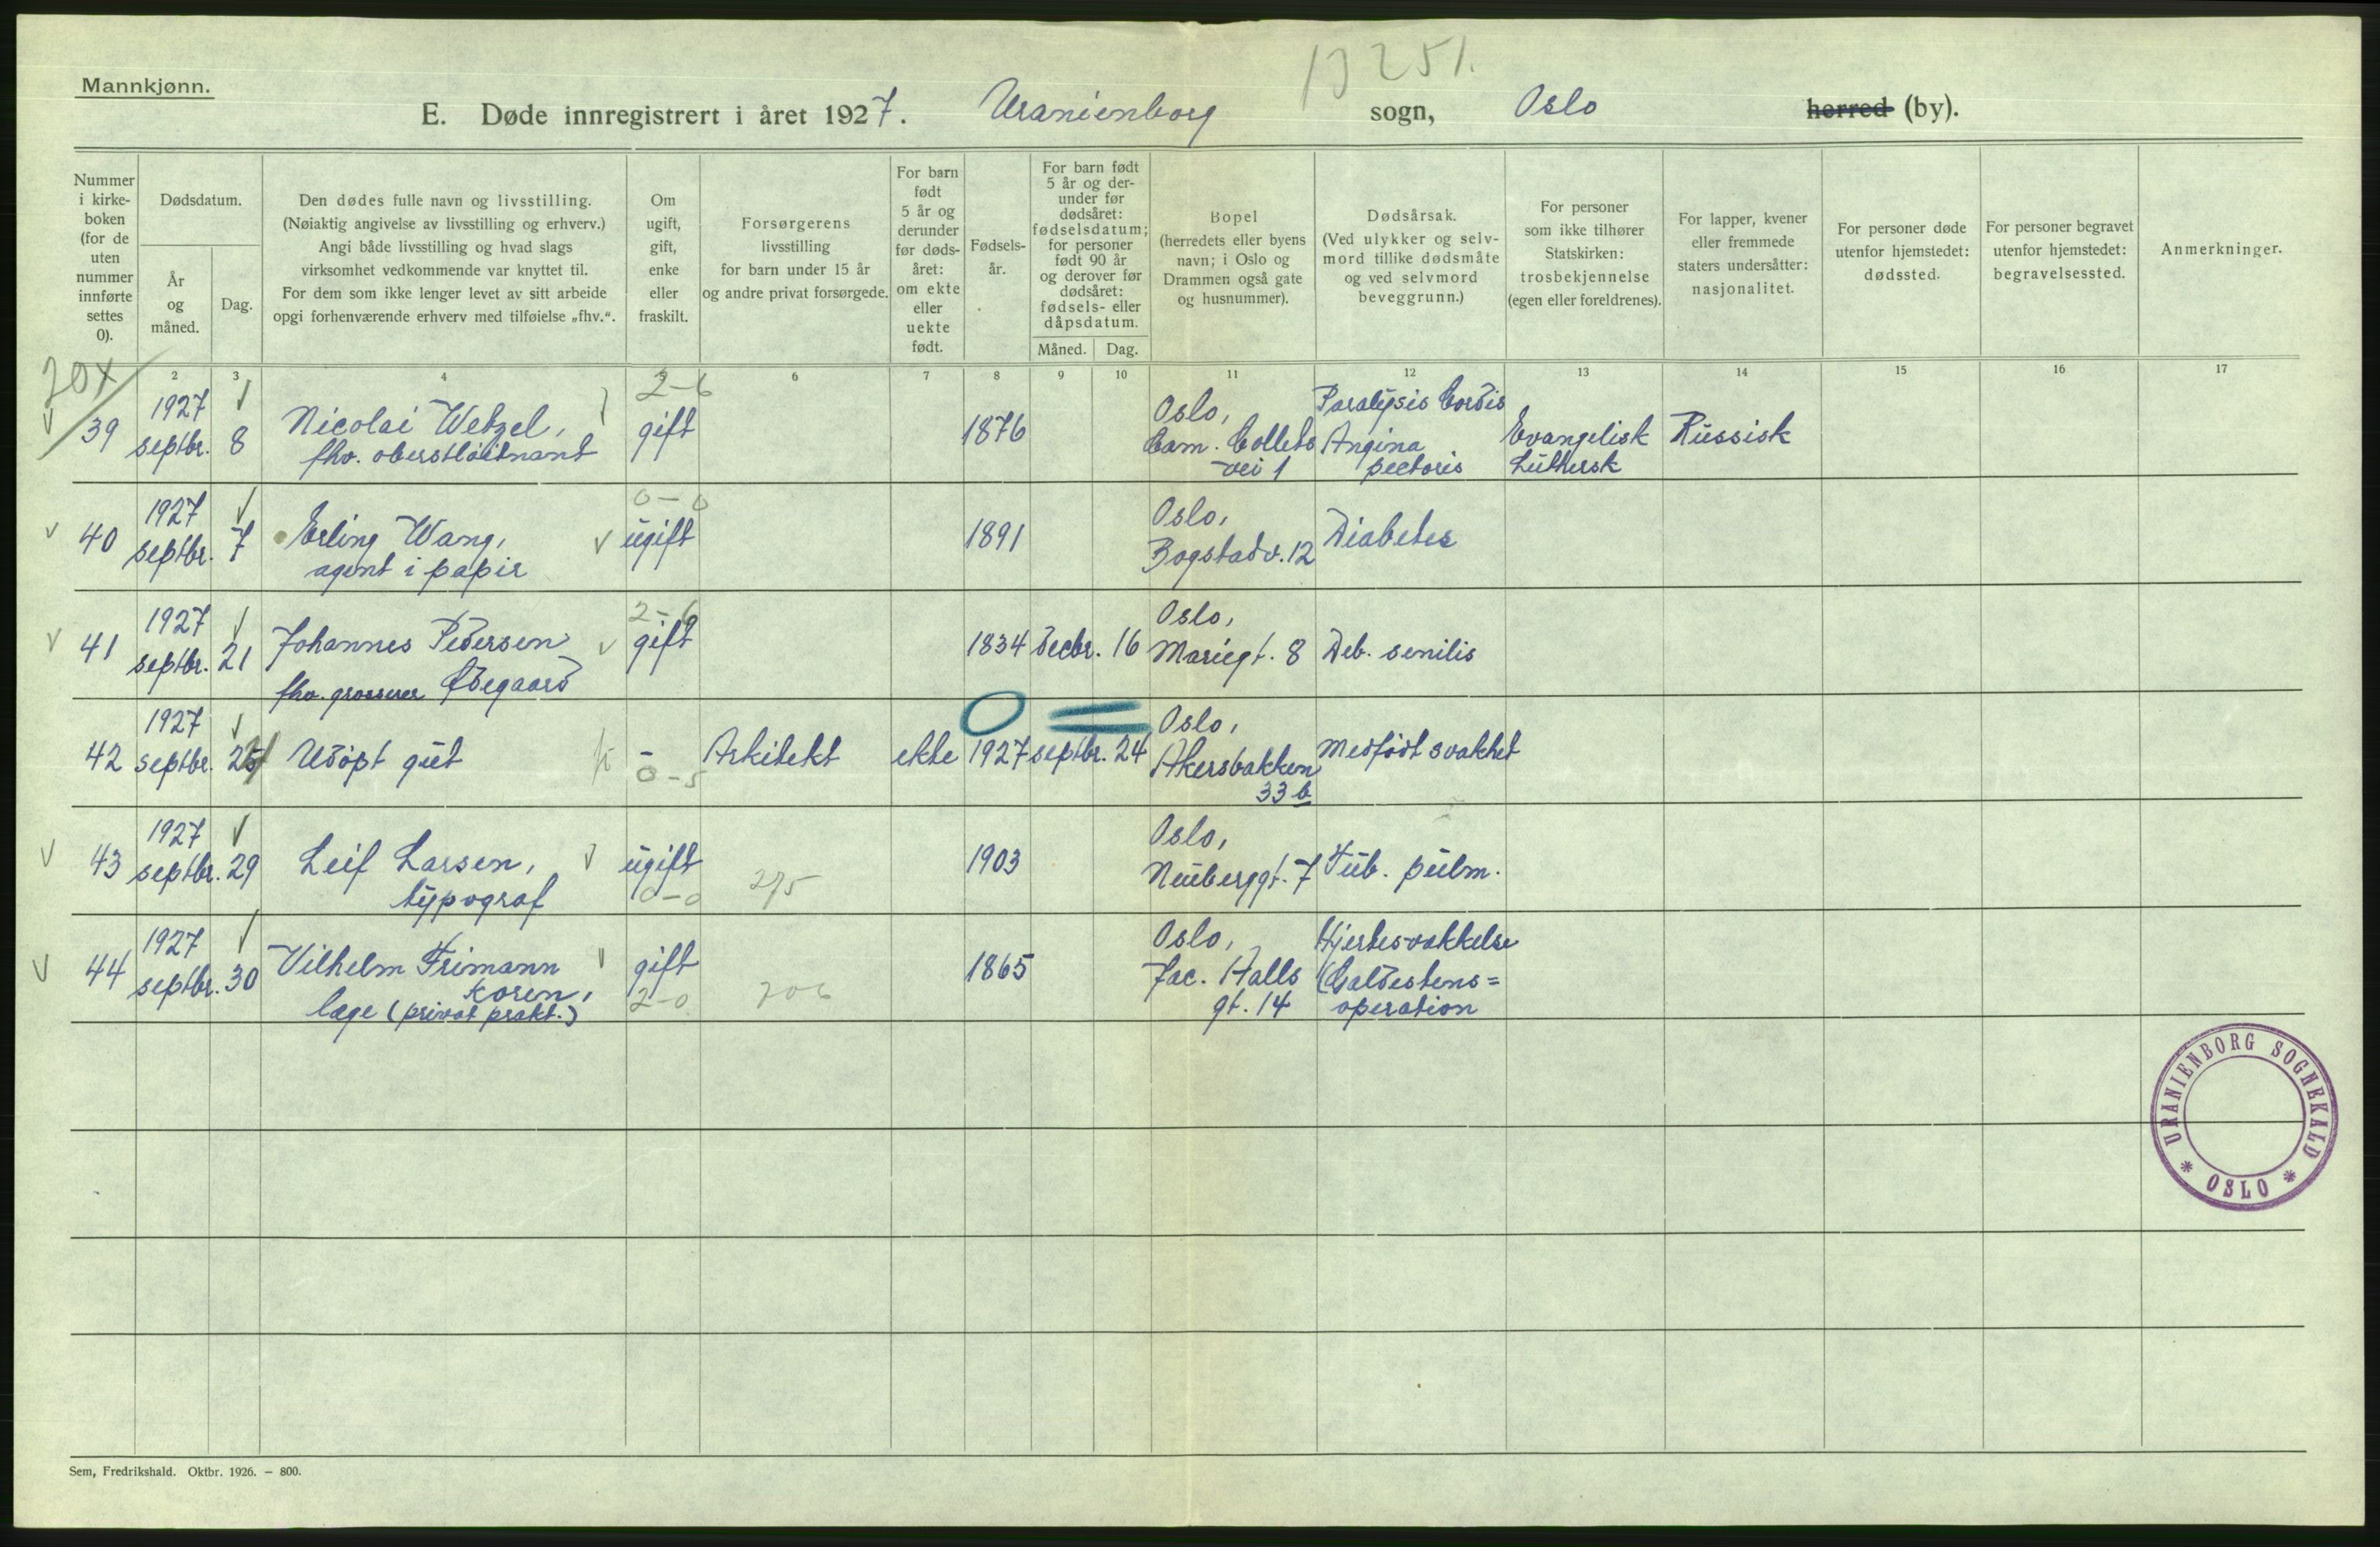 13251.
Mannkjønn.
E. Døde innregistrert i året 1927. Uranienborg sogn, Oslo herred (by).
Nummer i kirkeboken (for de uten nummer innførte settes 0).
Dødsdatum.
År og måned.
Dag.
Den dødes fulle navn og livsstilling.
(Nøiaktig angivelse av livsstilling og erhverv.)
Angi både livsstilling og hvad slags
virksomhet vedkommende var knyttet til.
For dem som ikke lenger levet av sitt arbeide
opgi forhenværende erhverv med tilføielse „fhv.“.
Om ugift, gift, enke eller fraskilt.
Forsørgerens
livsstilling
for barn under 15 år
og andre privat forsørgede.
For barn født 5 år og derunder før dødsåret: om ekte eller uekte født.
Fødselsår.
For barn født 5 år og derunder før dødsåret: fødselsdatum; for personer født 90 år og derover før dødsåret: fødsels- eller dåpsdatum.
Måned. Dag.
Bopel
(herredets eller byens
navn; i Oslo og
Drammen også gate
og husnummer).
Dødsårsak.
(Ved ulykker og selvmord tillike dødsmåte
og ved selvmord
beveggrunn.)
For personer
som ikke tilhører
Statskirken:
trosbekjennelse
(egen eller foreldrenes).
For lapper, kvener
eller fremmede
staters undersåtter:
nasjonalitet.
For personer døde
utenfor hjemstedet:
dødssted.
For personer begravet
utenfor hjemstedet:
begravelsessted.
Anmerkninger.
2 3 4 6 7 8 9 10 11 12 13 14 15 16 17
20x
39 1927 septbr. 8 Nicolai Wetzel, fhv. oberstløitnant 2-6 gift 1876 Oslo, Cam. Colletsvei 1 Paralysis Cordis Angina pectoris Evangelisk Luthersk Russisk
40 1927 septbr. 7 Erling Wang, agent i papir 0-0 ugift 1891 Oslo, Bogstadv. 12 Diabetes
41 1927 septbr. 21 Johannes Pedersen Ødegaard fhv. grosserer 2-6 gift 1834 decbr. 16 Oslo, Mariegt. 8 Deb. senilis
42 1927 septbr. Udøpt gut - 0-5 Arkitekt ekte 1927 septbr. 24 Oslo, Akersbakken 33 b Medfødt svakhet
43 1927 septbr. 29 Leif Larsen, typograf ugift 0-0 275 1903 Oslo, Neuberggt. 7 Tub. pulm.
44 1927 septbr. 30 Vilhelm Frimann Koren, læge (privat prakt.) gift 2-0 206 1865 Oslo, Jac. Halls gt. 14 Hjertesvakkelse (Galdestens=operation
URANIENBORG SOGNEKALD * OSLO *
Sem, Fredrikshald. Oktbr. 1926. – 800.